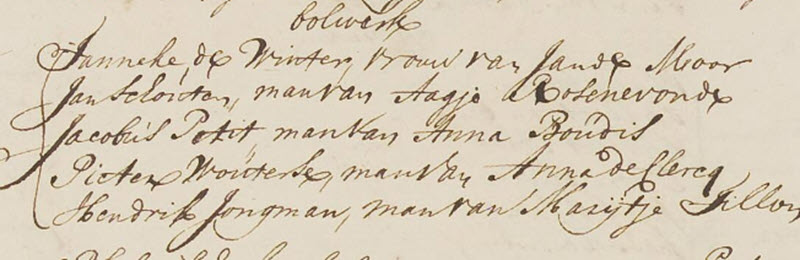 bolwerk
Janneke de Winter, vrouw van Jan de Moor
Jan Schouten, man van Aagje Rosenevonde
Jacobus Petit, man van Anna Boudis
Pieter Wouterse, man van Anna de Clercq
Hendrik Jongman, man van Marijtje